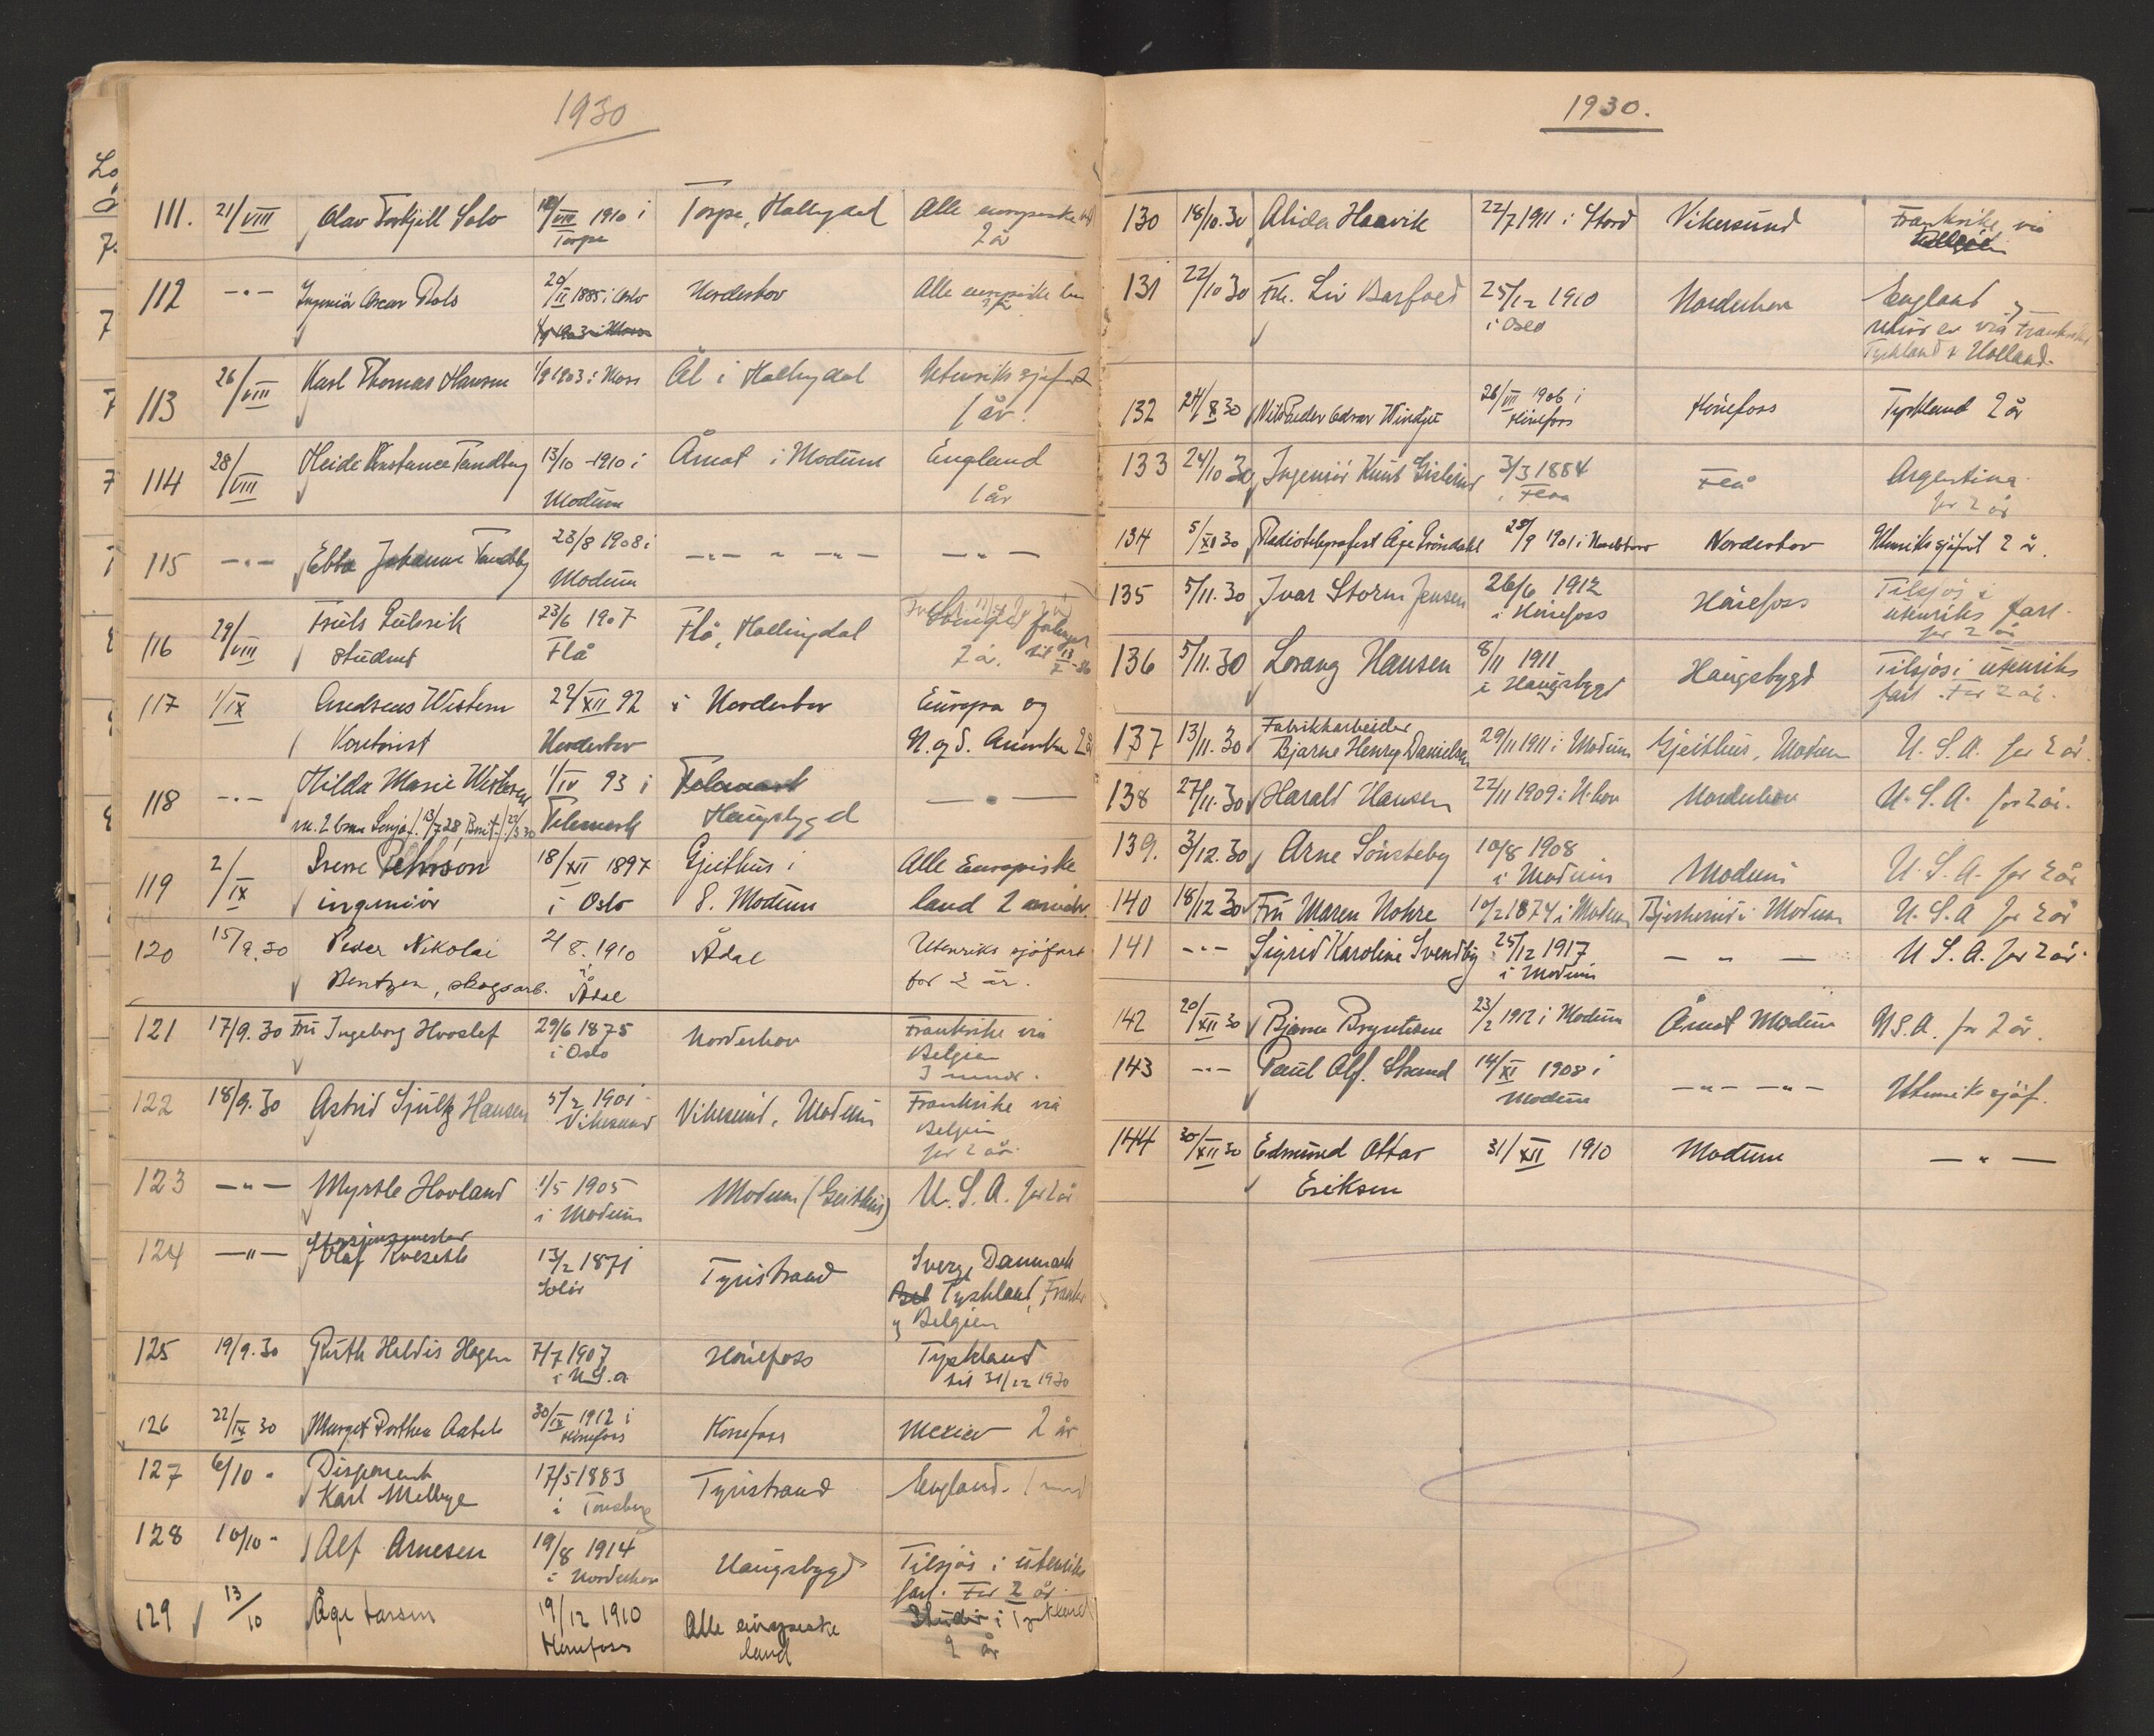 1930
111. 21/VIII Olav Torkjell Solo 12/VIII 1910 i Torpo Torpo, Hallingdal Alle europeiske land
2 år
112 -"- Ingeniör Oscar 20/II 1885 i Oslo Norderhov Alle europeiske
4/9 1903 i Moss
113 26/VIII Karl Thomas Hansen 4/9 1903 i Moss Ål i Hallingdal Utenriks sjöfart
1 år.
114 28/VIII Heidi Konstance Tandberg 13/10 -1910 i Modum Åmot i Modum England
1 år
115 -"- Ebba Johanne Tandbg 23/8 1908 i Modum -"- " -"- -"-
116 29/VIII Truls Gulsvik 23/6 1907 Flå, Hallingdal
student Flå 2 år.
117 1/IX Andreas Western 22/XII 92 i Norderhov Europa og
Kontorist Norderhov N. og S. Amerika 2 år
118 -"- Hilda Marie Western 1/IV 93 i Telemark
m. 2 barn Sonja f. 13/7 28, Berit f. Telemark Haugsbygd -"-
119 2/IX Sverre 18/XII 1897 Gjeithus i Alle Europeiske
ingeniör i Oslo S. Modum land 2
120 15/9.30 Peder Nikolai 2/8. 1910 Ådal Utenriks sjöfart
Bentzen, skogsarb. i Ådal for 2 år.
121 17/9.30 Fru Ingeborg Hvoslef 29/6 1875 Norderhov Frankrike via
i Oslo Belgien
3 mndr.
122 18/9.30 Astrid Hansen 5/2 1901 Vikersund, Modum Frankrike via
Vikersund Belgien
for 2 år.
123 -"- Myrtle Hovland 1/5 1905 Modum (Geithus) U.S.A. for 2 år
i Modum
124 -"- Stasjonsmester
Olaf Kveseth 13/2 1871 Tyristrand Sverge, Danmark
Solör Bel Tyskland, Frankr
og Belgien
125 19/9.30 Ruth Haldis Hagen 7/7 1907 Hönefoss Tyskland
i U.S.a til 31/12 1930
126 22/IX 30 Margit Dorthea 30/IX 1912 i Hönefoss Hönefoss Mexico 2 år
127 6/10 - Disponent 17/5 1883 Tyristrand England. 1 mnd
Karl Melbye i Tönsberg
128 10/10 - Alf Arnesen 19/8 1914 Haugsbygd Tilsjös i utenriks
i Norderhov fart. For 2 år.
129 13/10 Åge Larsen 19/12 1910 Alle europeiske Studier i Tyskland
Hönefoss land 2 år
1930.
130 18/10.30 Alida Haavik 22/7 1911 i Stord Vikersund Frankrike via
131 22/10 30 Frk. Liv Barfoed 25/12 1910 Norderhov England
i Oslo retur er via Frankrike
Tyskland & Holland.
132 24/X 30 Nils Peder Edvar Windju 26/VII 1906 i Hönefoss Hönefoss Tyskland 2 år
133 24/10 30 Ingeniör Knut Gislerud 3/3 1884 Flå Argentina
i Flaa for 2 år
134 5/XI 30 Radiotelegrafist Åge Tröndahl 28/9 1901 i Norderhov Norderhov Utenriks sjöfart 2 år.
135 5/11.30 Ivar Storm Jensen 26/6 1912 Hönefoss Tilsjös i
i Hönefoss utenriks fart.
for 2 år
136 5/11.30 Lorang Hansen 8/11 1911 Haugsbygd Tilsjös i utenriks
i Haugsbygd fart. For 2 år.
137 13/11.30 Fabrikkarbeider
Bjarne Henry Danielsen 29/11 1911 i Modum Gjeithus, Modum U.S.A. for 2 år.
138 27/11.30 Harald Hansen 22/11 1909 i N.hov Norderhov U.S.A. for 2 år.
139. 3/12.30 Arne Sönsteby 10/8 1908 Modum U.S.A. for 2 år
i Modum
140 18/12 30 Fru Maren Mohre 10/2 1874 i Modum Bjerkerud i Modum U.S.A for 2 år
141 -"- Sigrid Karoline Svendby 25/12 1917 - " - U S.A. for 2 år.
i Modum
142 20/XII 30 Bjarne 23/2 1912 i Modum Åmot Modum U S.A. for 2 år.
143 -"- Paul Alf. Strand 14/XI 1908 i Modum -"- -"- Utenriks sjöf.
144 30/XII 30 Edmund Ottar 31/XII 1910 Modum -"-
Eriksen